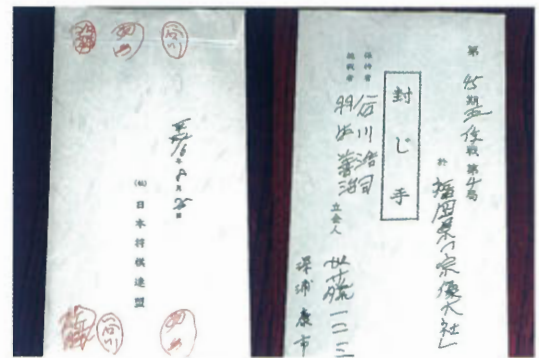 第45期王位戦第4局
於 福岡県「宗像大社」
封じ手
保持者 谷川浩司
挑戦者 羽生善治
立会人 加藤一二三
深浦康市
谷川
羽生
加藤
16年8月 日
(社)日本将棋連盟
羽生
谷川
加藤